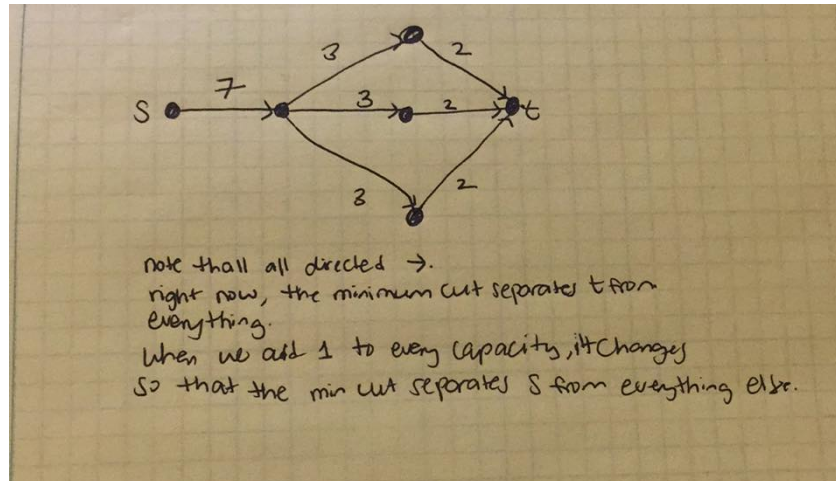 3
2
7
S
3
2
t
3
2
note thall all directed →.
right now, the minimum cut separates t from
everything.
when we add 1 to every capacity, it changes
so that the min cut separates S from everything else.